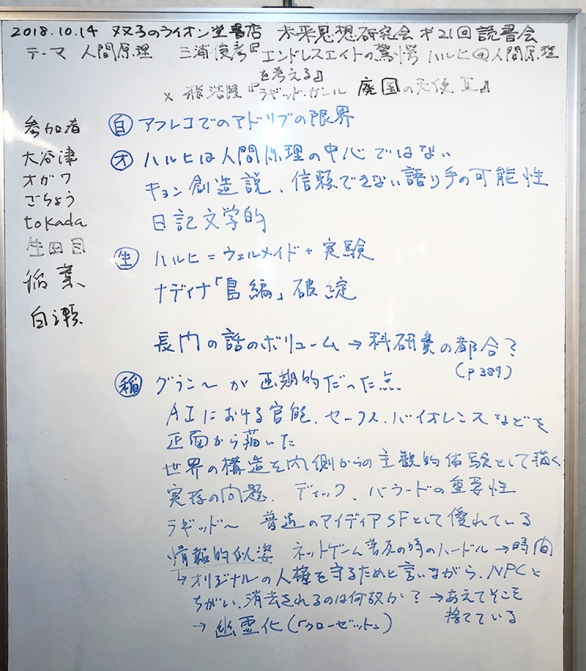 2018.10.14 双子のライオン堂書店 未来思想研究会 第21回読書会
テーマ 人間原理 三浦俊彦『エンドレスエイトの驚愕 ハルヒ@人間原理
を考える』
× 飛浩隆『ラギッド・ガール 廃園の天使Ⅱ』
参加者
大谷津
オガワ
ごちょう
tokada
生田目
稲葉
白瀬
白 アフレコでのアドリブの限界
オ ハルヒは人間原理の中心ではない
キョン創造説、信頼できない語り手の可能性
日記文学的
生 ハルヒ=ウェルメイド+実験
ナディア「島編」破綻
長門の話のボリューム→科研費の都合?
(p389)
稲 グラン〜が画期的だった点
AIにおける官能、セックス、バイオレンスなどを
正面から描いた
世界の構造を内側からの主観的体験として描く
実存の問題 ディック、バラードの重要性
ラギッド〜 普通のアイディアSFとして優れている
情報的似姿 ネットゲーム普及の時のハードル→時間
↳オリジナルの人権を守るためと言いながら、NPCと
ちがい、消去されるのは何故か?→あえてそこを
捨てている
→幽霊化(「クローゼット」)